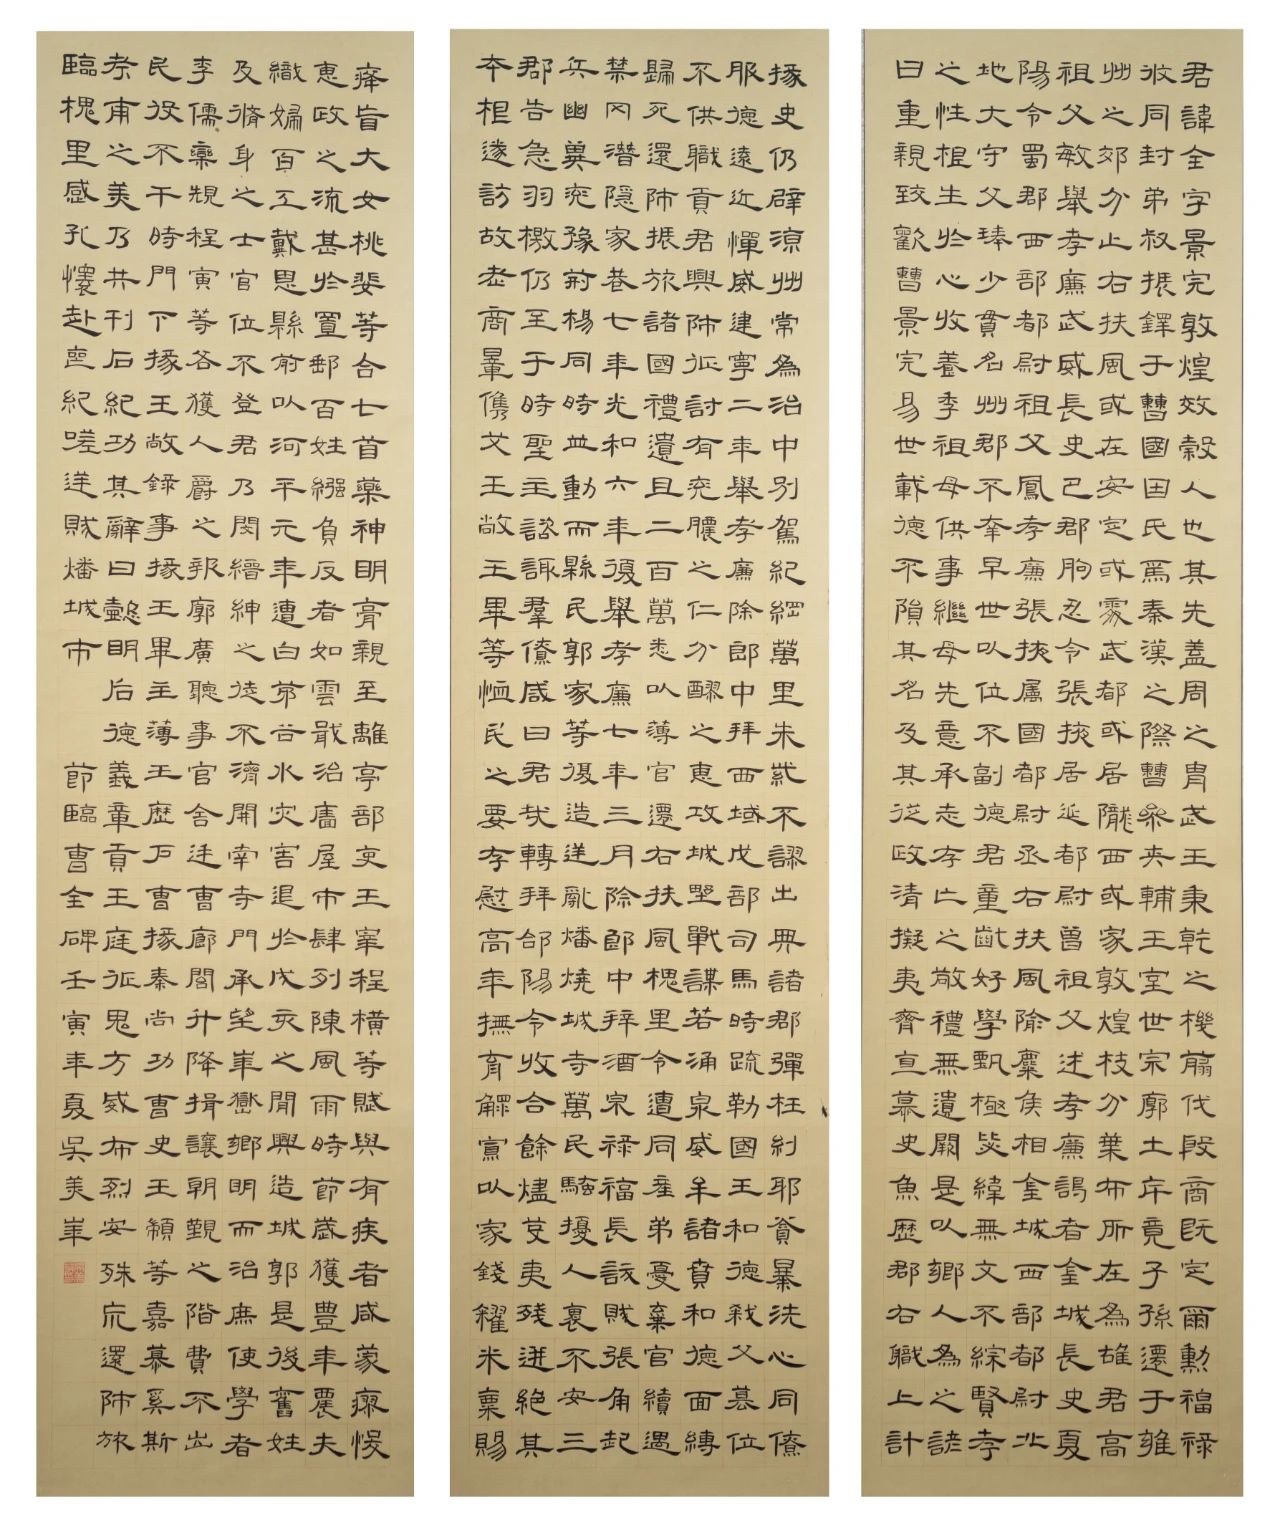 君諱全字景完敦煌效穀人也其先蓋周之胄武王秉乾之機翦伐殷商既定爾勳福祿
攸同封弟叔振鐸于曹國因氏焉秦漢之際曹參夾輔王室世宗廓土斥竟子孫遷于雍
州之郊分止右扶風或在安定或處武都或居隴西或家敦煌枝分葉布所在為雄君高
祖父敏舉孝廉武威長史巴郡朐忍令張掖居延都尉曾祖父述孝廉謁者金城長史夏
陽令蜀郡西部都尉祖父鳳孝廉張掖属國都尉丞右扶風隃麋侯相金城西部都尉北
地大守父琫少貫名州郡不幸早世以位不副德君童齔好學甄極毖緯無文不綜賢孝
之性根生於心收養季祖母供事繼母先意承志存亡之敬禮無遺闕是以鄉人為之諺
曰重親致歡曹景完易世載德不隕其名及其從政清擬夷齊直慕史魚歷郡右職上計
掾史仍辟涼州常為治中別駕紀綱萬里朱紫不謬出典諸郡彈枉糾邪貪暴洗心同僚
服德遠近憚威建寧二年舉孝廉除郎中拜西域戊部司馬時疏勒國王和德弒父篡位
不供職貢君興師征討有兗膿之仁分醪之惠攻城野戰謀若涌泉威牟諸賁和德面縛
歸死還師振旅諸國禮遺且二百萬悉以薄官還右扶風槐里令遭同産弟憂棄官續遇
禁冈潛隱家巷七年光和六年復舉孝廉七年三月除郎中拜酒泉祿福長訞賊張角起
兵幽冀兗豫荊楊同時並動而縣民郭家等復造逆亂燔燒城寺萬民騷擾人裹不安三
郡告急羽檄仍至于時聖主諮諏羣僚咸曰君哉轉拜郃陽令收合餘燼芟夷殘迸絕其
本根遂訪故老商量儁艾王敞王畢等恤民之要存慰高年撫育鰥寡以家錢糴米粟賜
癃盲大女桃婓等合七首藥神明膏親至離亭部吏王宰程橫等賦與有疾者咸蒙瘳悛
惠政之流甚於置郵百姓繦負反者如雲戢治廧屋市肆列陳風雨時節歲獲豐年農夫
織婦百工戴恩縣前以河平元年遭白茅谷水灾害退於戌亥之間興造城郭是後舊姓
及脩身之士官位不登君乃閔縉紳之徒不濟開南寺門承望華嶽鄉明而治庶使學者
李儒欒規程寅等各獲人爵之報廓廣聽事官舍廷曹廊閣升降揖讓朝覲之階費不出
民役不干時門下掾王敞錄事掾王畢主薄王歷戶曹掾秦尚功曹史王顓等嘉慕奚斯
孝甫之美乃共刊石紀功其辭曰懿明后德義章貢王庭征鬼方威布烈安殊荒還師旅
臨槐里感孔懷赴喪紀嗟逆賊燔城市 節臨曹全碑壬寅年夏吳美華